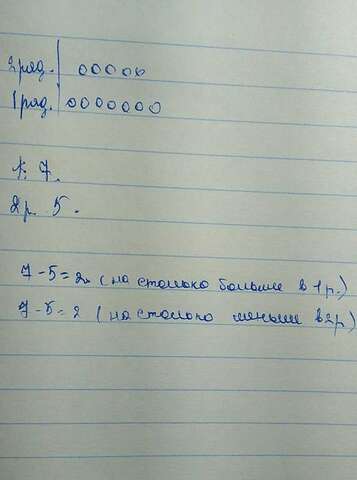 2 ряд. | 00000
1 ряд. | 0000000
1. 7.
2р. 5.
7-5=2 (на столько больше в 1р.)
7-5=2 (на столько меньше в 2р)